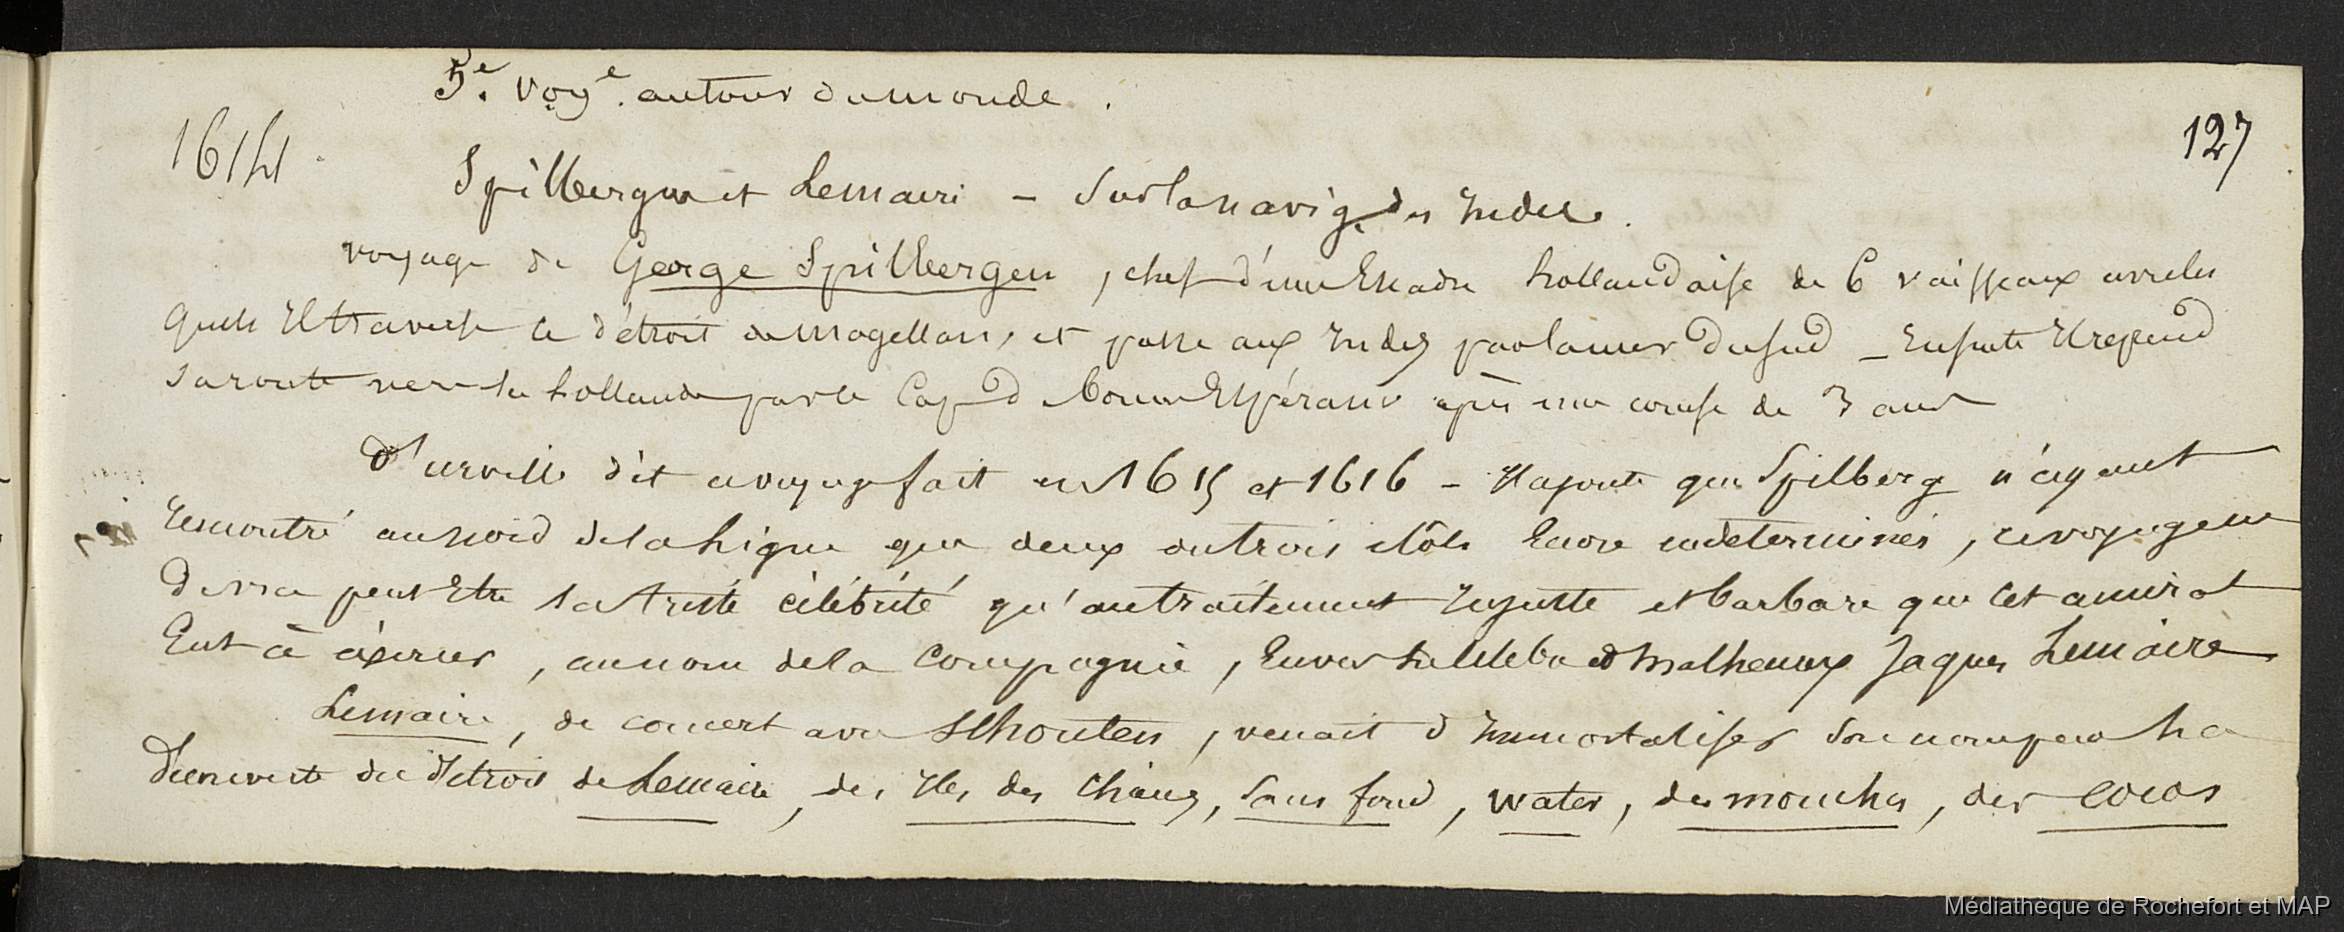 5.e voy.e autour du monde.
127
1614.
Spilbergue et Lemaire – Sur la navig. des Indes.
voyage de George Spilbergen, chef d'une Escadre hollandaise de 6 vaisseaux avec les
quels Il traverse le détroit de Magellan, et passe aux Indes par la mer du sud – Ensuite Il reprend
sa route vers la hollande par le Cap de bonne Espérance après une course de 3 ans
d'urville dit ce voyage fait en 1615 et 1616 – Il ajoute que Spilberg n'ayant
rencontré au nord de la Ligne que deux ou trois ilôts Encore indeterminés, ce voyageur
devra peut Etre sa triste célébrité qu'au traitement Injuste et barbare que Cet amiral
Eut à éxercer, au nom de la Compagnie, Envers le célèbre et malheureux Jaques Lemaire
Lemaire, de concert avec Schouten, venait d'Immortaliser son nom par La
Découverte du détroit de Lemaire, des Iles des Chiens, Sans fond, Water, des mouches, des Cocos
Médiathèque de Rochefort et MAP